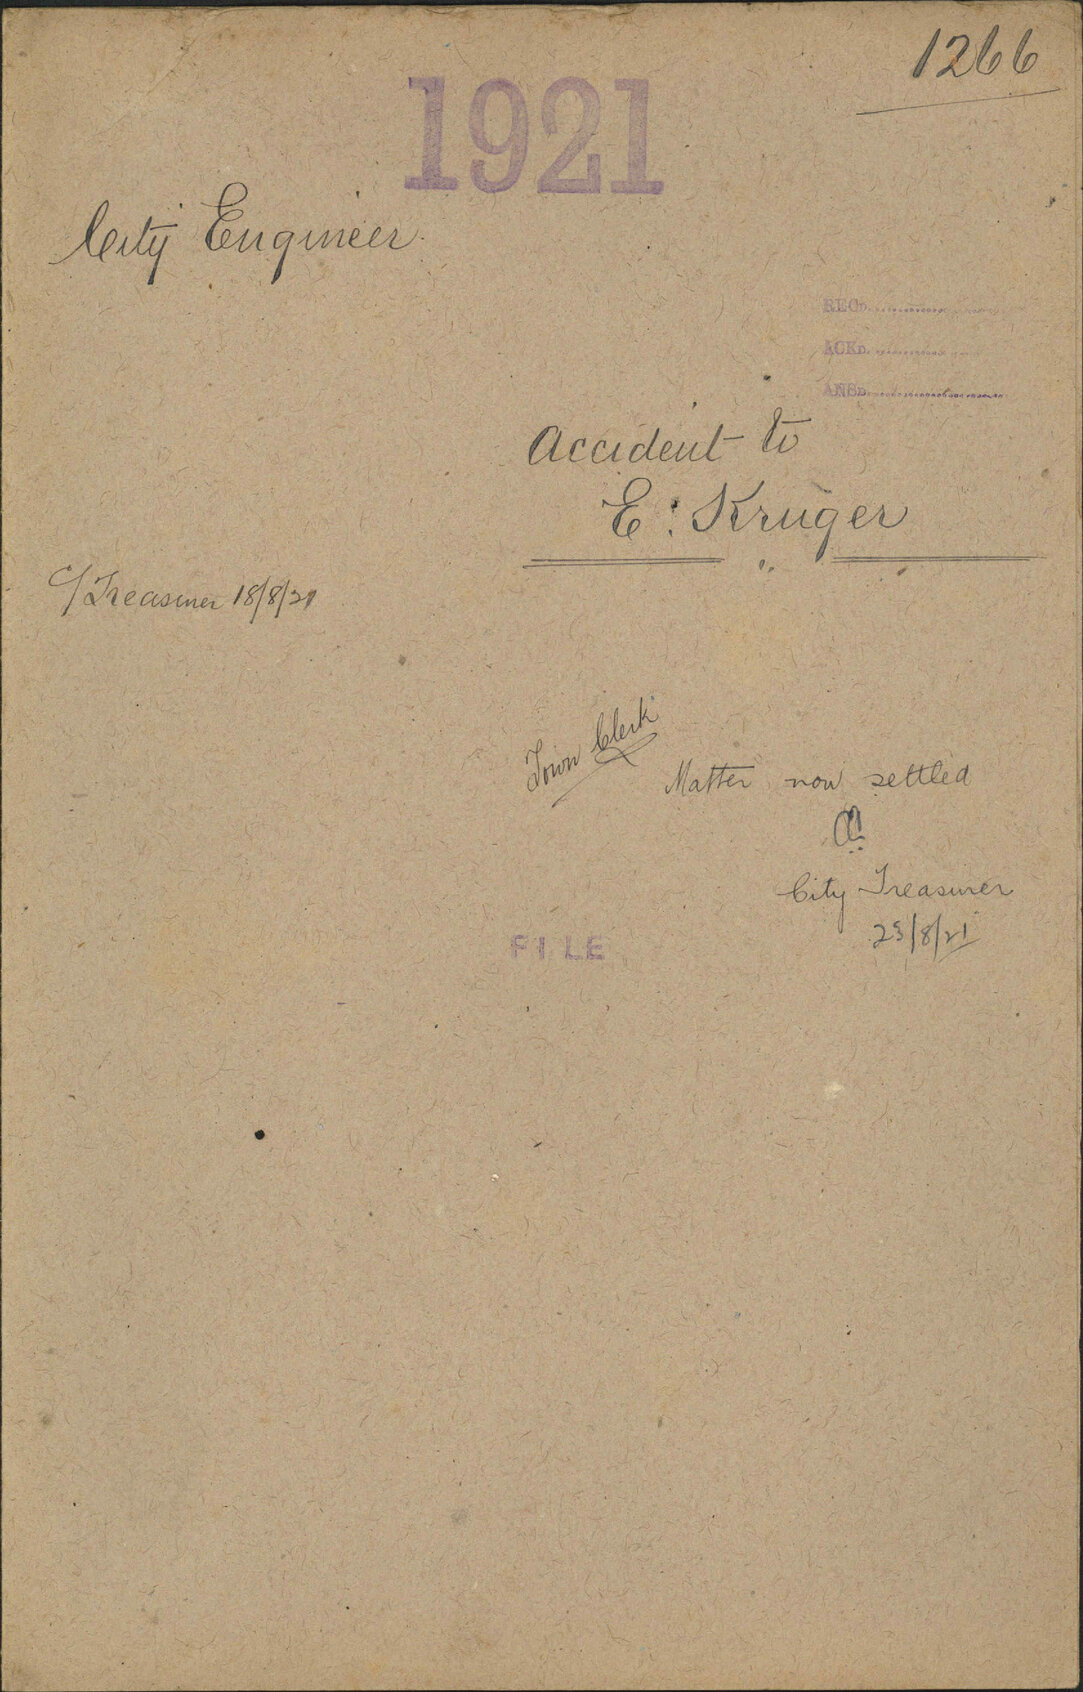 1266
1921
City Engineer
RECD.
ACKD.
ANSD.
Accident to
E: Kruger
C/Treasurer 18/8/21
Town Clerk
Matter now settled
City Treasurer
23/8/21
FILE